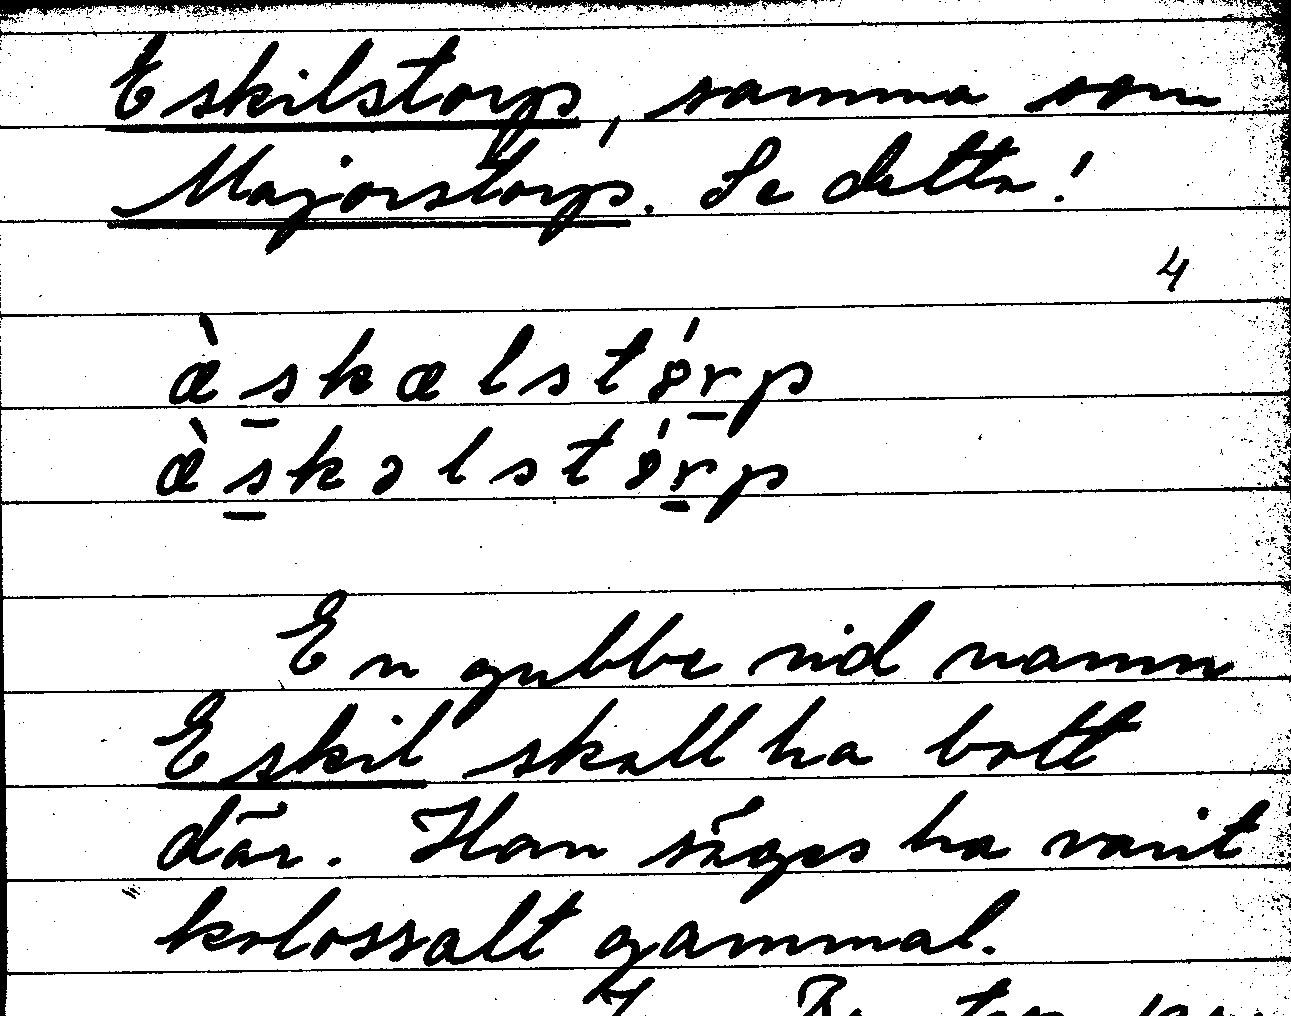 Eskilstorp, samma som
Majorstorp. Se detta!
4
æ̀s̲kælstǿr̲p
æ̀s̲kəlstǿr̲p
En gubbe vid namn
Eskil skall ha bott
där. Han säges ha varit
kolossalt gammal.